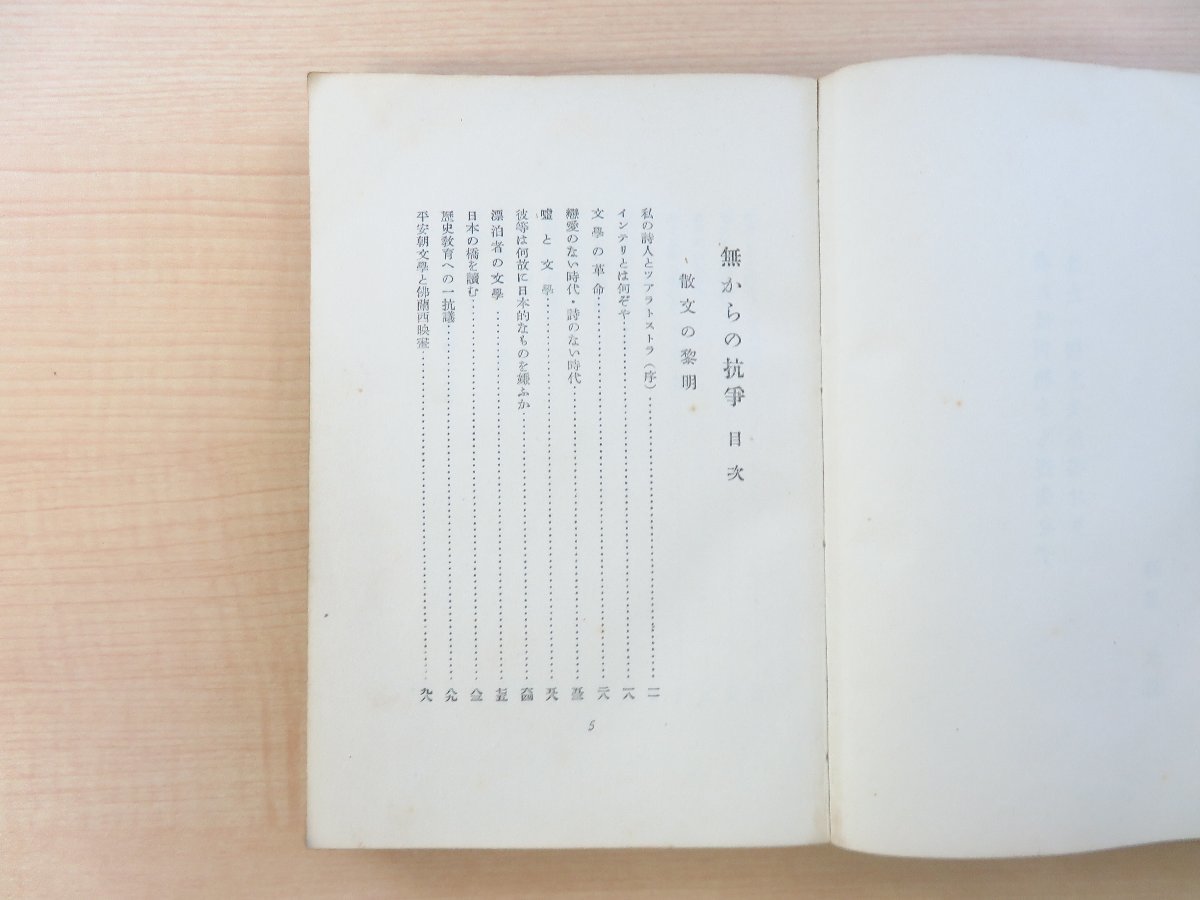 無からの抗爭 目次
散文の黎明
私の詩人とツアラトストラ(序)……一一
インテリとは何ぞや……一八
文學の革命……二八
戀愛のない時代・詩のない時代……五三
噓と文學……五八
彼等は何故に日本的なものを嫌ふか……六四
漂泊者の文學……七五
日本の橋を讀む……八三
歷史敎育への一抗議……八九
平安朝文學と佛蘭西映畫……九八
5